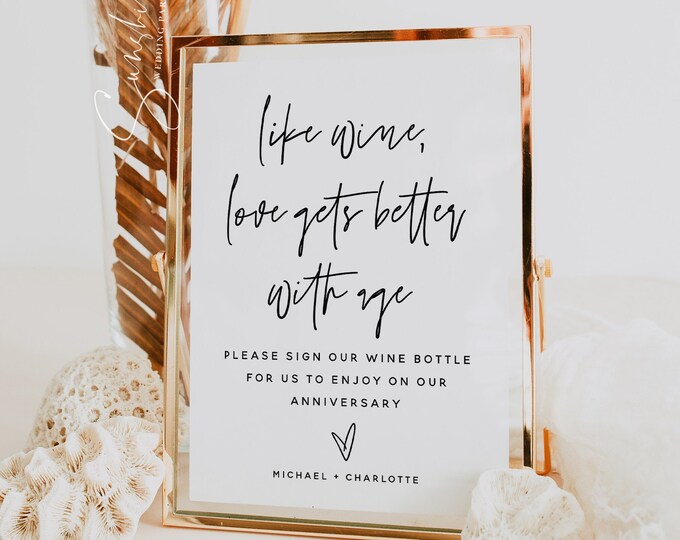 like wine,
love gets better
with age
PLEASE SIGN OUR WINE BOTTLE
FOR US TO ENJOY ON OUR
ANNIVERSARY
MICHAEL + CHARLOTTE
WEDDING